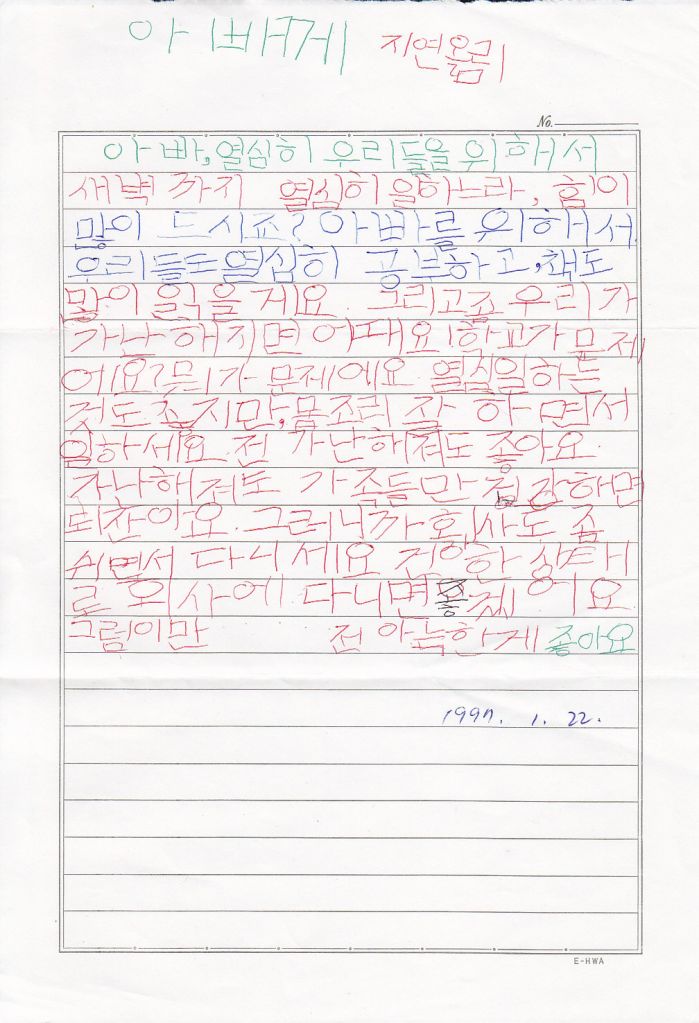 아빠게 지연올림
No.
아빠, 열심히 우리들을 위해서
새벽까지 열심히 일하느라, 힘이
많이 드시죠? 아빠를 위해서
우리들도 열심히 공부하고, 책도
많이 읽을게요 그리고 우리가
가난해지면 어때요! 하고가 문제
에요? 뭣이가 문제에요 열심일하는
것도 좋지만, 몸조리 잘 하면서
일하세요 전 가난해져도 좋아요
가난해져도 가족들만 건강하면
되잔아요. 그러니까 회사도 좀
쉬면서 다니세요 건강한 상태
로 회사에 다니면 좋겠어요
그럼이만 전 아늑한게 좋아요
1997. 1. 22.
E-HWA